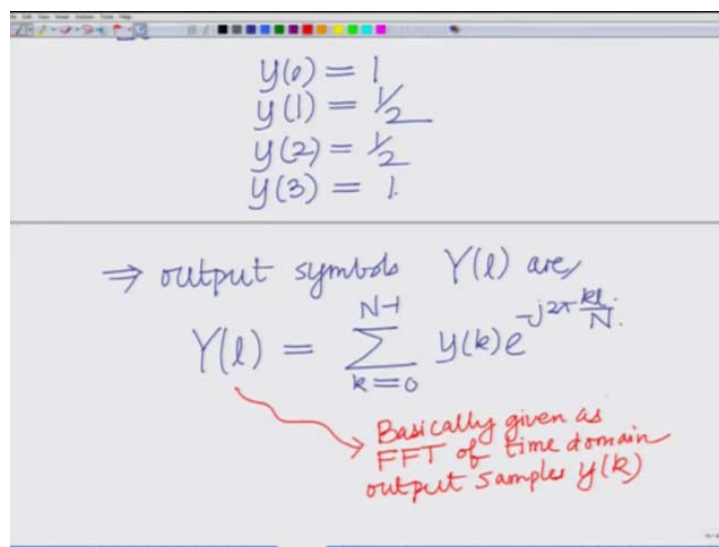 y(0) = 1
y(1) = 1/2
y(2) = 1/2
y(3) = 1.
⇒ output symbols Y(l) are,
Y(l) = ∑_{k=0}^{N-1} y(k) e^{-j2π kl/N}.
Basically given as
FFT of time domain
output samples y(k)